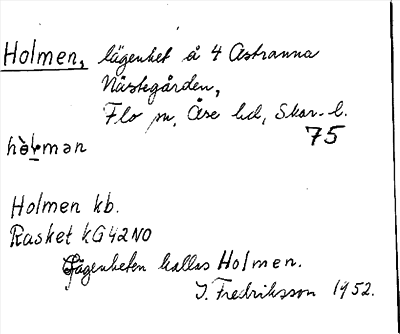 Holmen, lägenhet å 4 Åstranna
Nästegården,
Flo sn, Åse hd, Skar. l.
75
hòḷman
Holmen kb.
Rasket kG42NO
Lägenheten kallas Holmen.
I. Fredriksson 1952.